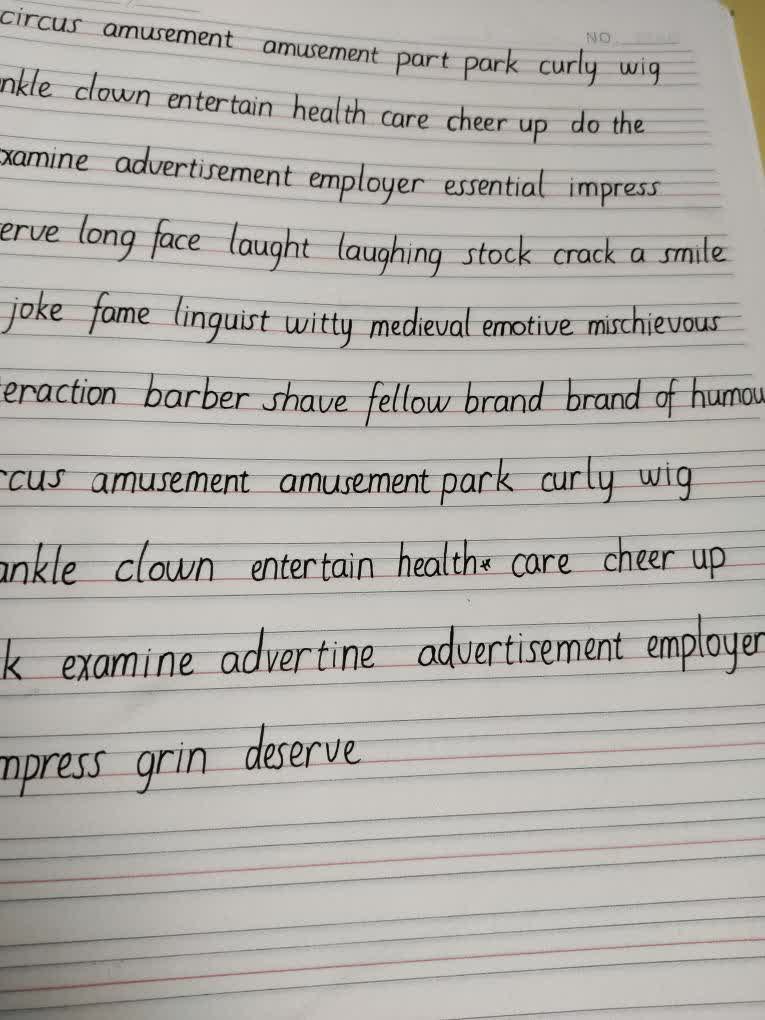 NO.
circus amusement amusement part park curly wig
nkle clown entertain health care cheer up do the
xamine advertisement employer essential impress
erve long face laught laughing stock crack a smile
joke fame linguist witty medieval emotive mischievous
eraction barber shave fellow brand brand of humou
rcus amusement amusement park curly wig
ankle clown entertain health* care cheer up
k examine advertine advertisement employer
mpress grin deserve